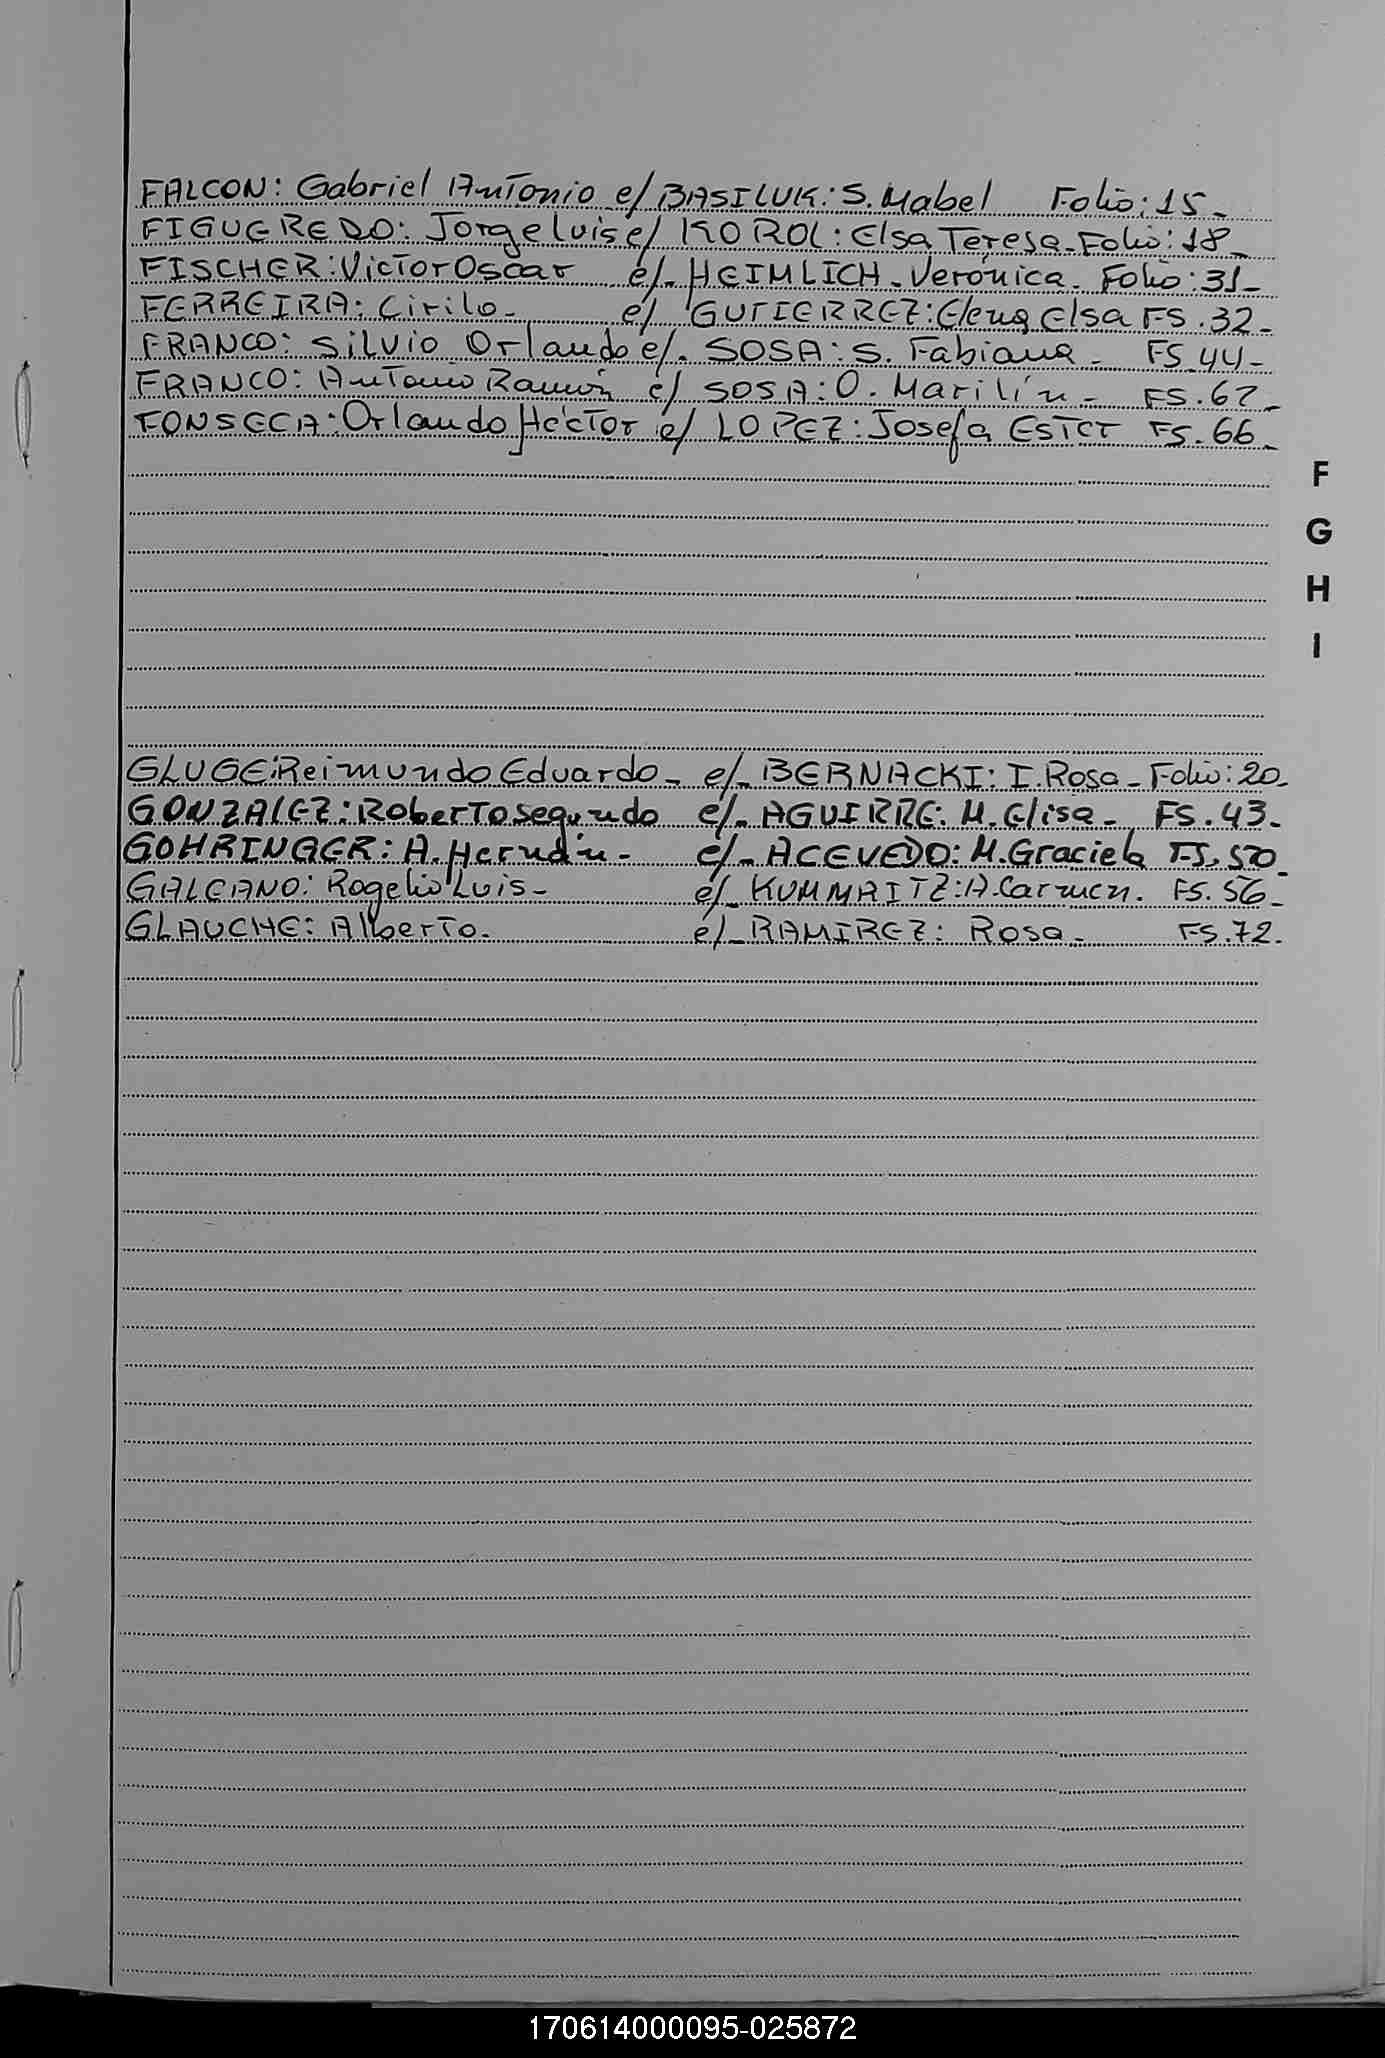 FALCON: Gabriel Antonio e/ BASILUK: S. Mabel Folio: 15-
FIGUEREDO: Jorge Luis e/ KOROL: Elsa Teresa- Folio: 18-
FISCHER: Victor Oscar e/- HEIMLICH- Verónica. Folio: 31-
FERREIRA: Cirilo- e/ GUTIERREZ: Elena Elsa FS. 32-
FRANCO: Silvio Orlando e/- SOSA: S. Fabiana- FS. 44-
FRANCO: Antonio Ramón e/ SOSA: O. Marilín- FS. 62-
FONSECA: Orlando Héctor e/ LOPEZ: Josefa Ester FS. 66-
F
G
H
I
GLUGE: Reimundo Eduardo- e/- BERNACKI: I. Rosa- Folio: 20-
GONZALEZ: Roberto Segundo e/- AGUIRRE: M. Elisa- FS. 43-
GOHRINGER: A. Hernán- e/- ACEVEDO: M. Graciela FS. 50-
GALEANO: Rogelio Luis- e/- KUMMRITZ: A. Carmen. FS. 56-
GLAUCHE: Alberto- e/- RAMIREZ: Rosa- FS. 72.
170614000095-025872